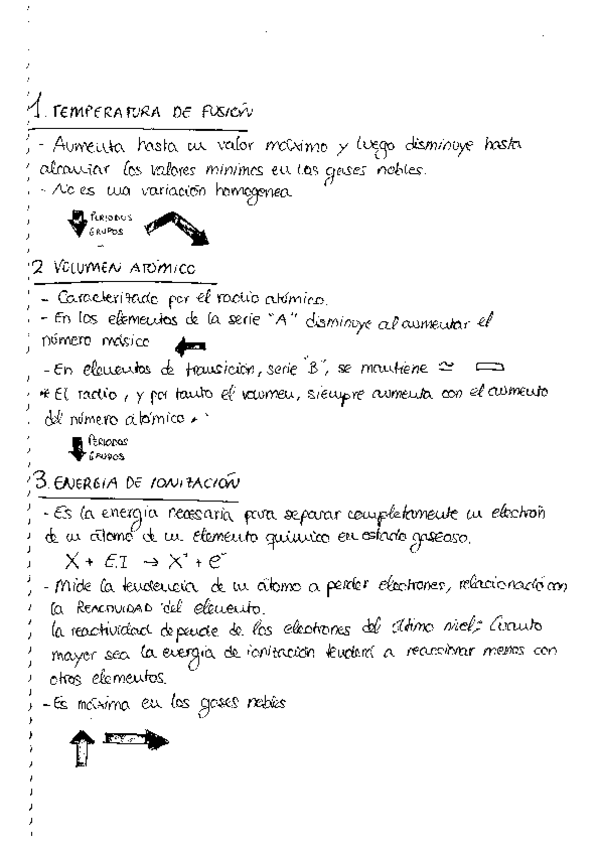 1. TEMPERATURA DE FUSIÓN
- Aumenta hasta un valor máximo y luego disminuye hasta
alcanzar los valores mínimos en los gases nobles.
- No es una variación homogenea
PERIODOS
GRUPOS
2 VOLUMEN ATÓMICO
- Caracterizado por el radio atómico.
- En los elementos de la serie "A" disminuye al aumentar el
número másico
- En elementos de transición, serie "B", se mantiene ≃
* El radio, y por tanto el volumen, siempre aumenta con el aumento
del número atómico
PERIODOS
GRUPOS
3. ENERGÍA DE IONIZACIÓN
- Es la energía necesaria para separar completamente un electrón
de un átomo de un elemento químico en estado gaseoso.
X + E.I → X⁺ + e⁻
- Mide la tendencia de un átomo a perder electrones, relacionado con
la REACTIVIDAD del elemento.
la reactividad depende de los electrones del último nivel; Cuanto
mayor sea la energía de ionización tenderá a reaccionar menos con
otros elementos.
- Es máxima en los gases nobles